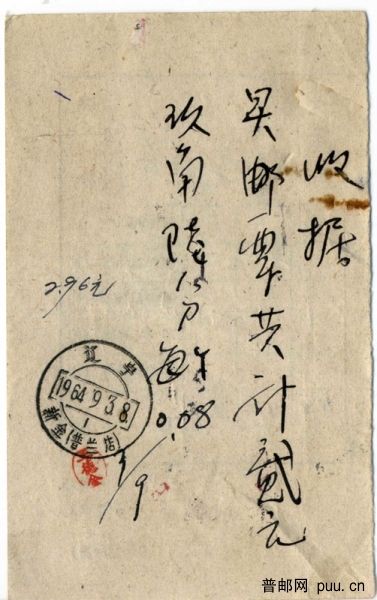 收据
买邮票共计贰元
玖角陆分每
0.08
3/9
2.96元
辽宁
1964.9.3.8
1
新金(普兰店)
普邮网 puu.cn